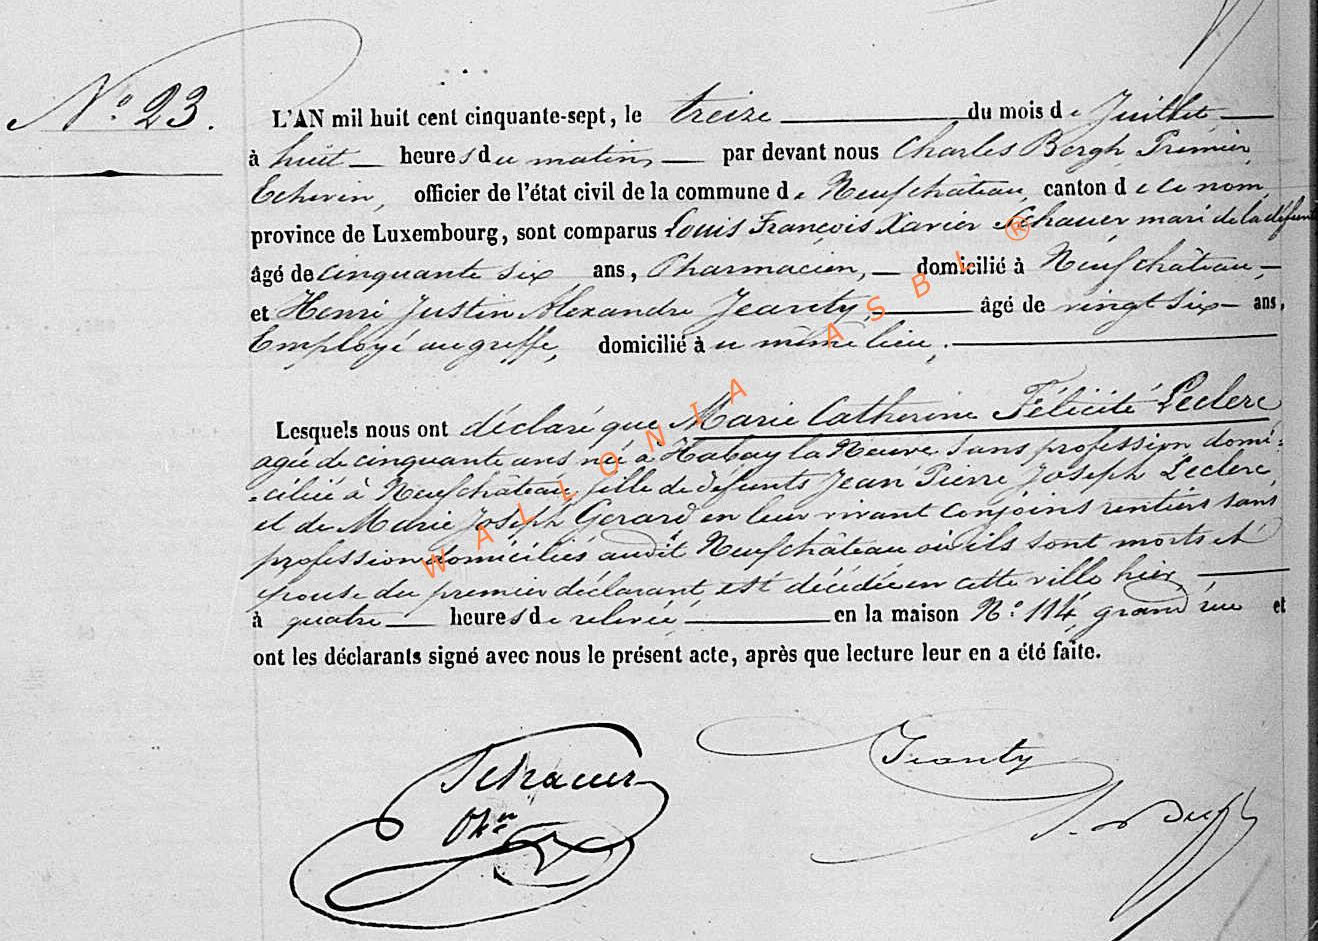 N.º 23.
L'AN mil huit cent cinquante-sept, le treize du mois de Juillet
à huit heures du matin, par devant nous Charles Bergh, Premier
Echevin, officier de l'état civil de la commune de Neufchâteau, canton de ce nom,
province de Luxembourg, sont comparus Louis François Xavier Schauer mari de la défunte
âgé de cinquante six ans, Pharmacien, domicilié à Neufchâteau,
et Henri Justin Alexandre Jeanty, âgé de vingt six ans,
Employé au greffe, domicilié au même lieu,
Lesquels nous ont déclaré que Marie Catherine Félicité Leclerc
agée de cinquante ans née à Habay la Neuve sans profession domi=
=ciliée à Neufchâteau, fille de défunts Jean Pierre Joseph Leclerc
et de Marie Joseph Gerard en leur vivant conjoins rentiers sans
profession domiciliés audit Neufchâteau où ils sont morts et
épouse du premier déclarant est décédée en cette ville hier
à quatre heures de relevée en la maison N.º 114, grand rue et
ont les déclarants signé avec nous le présent acte, après que lecture leur en a été faite.
WALLONIA ASBL ®
Schauer
Jeanty